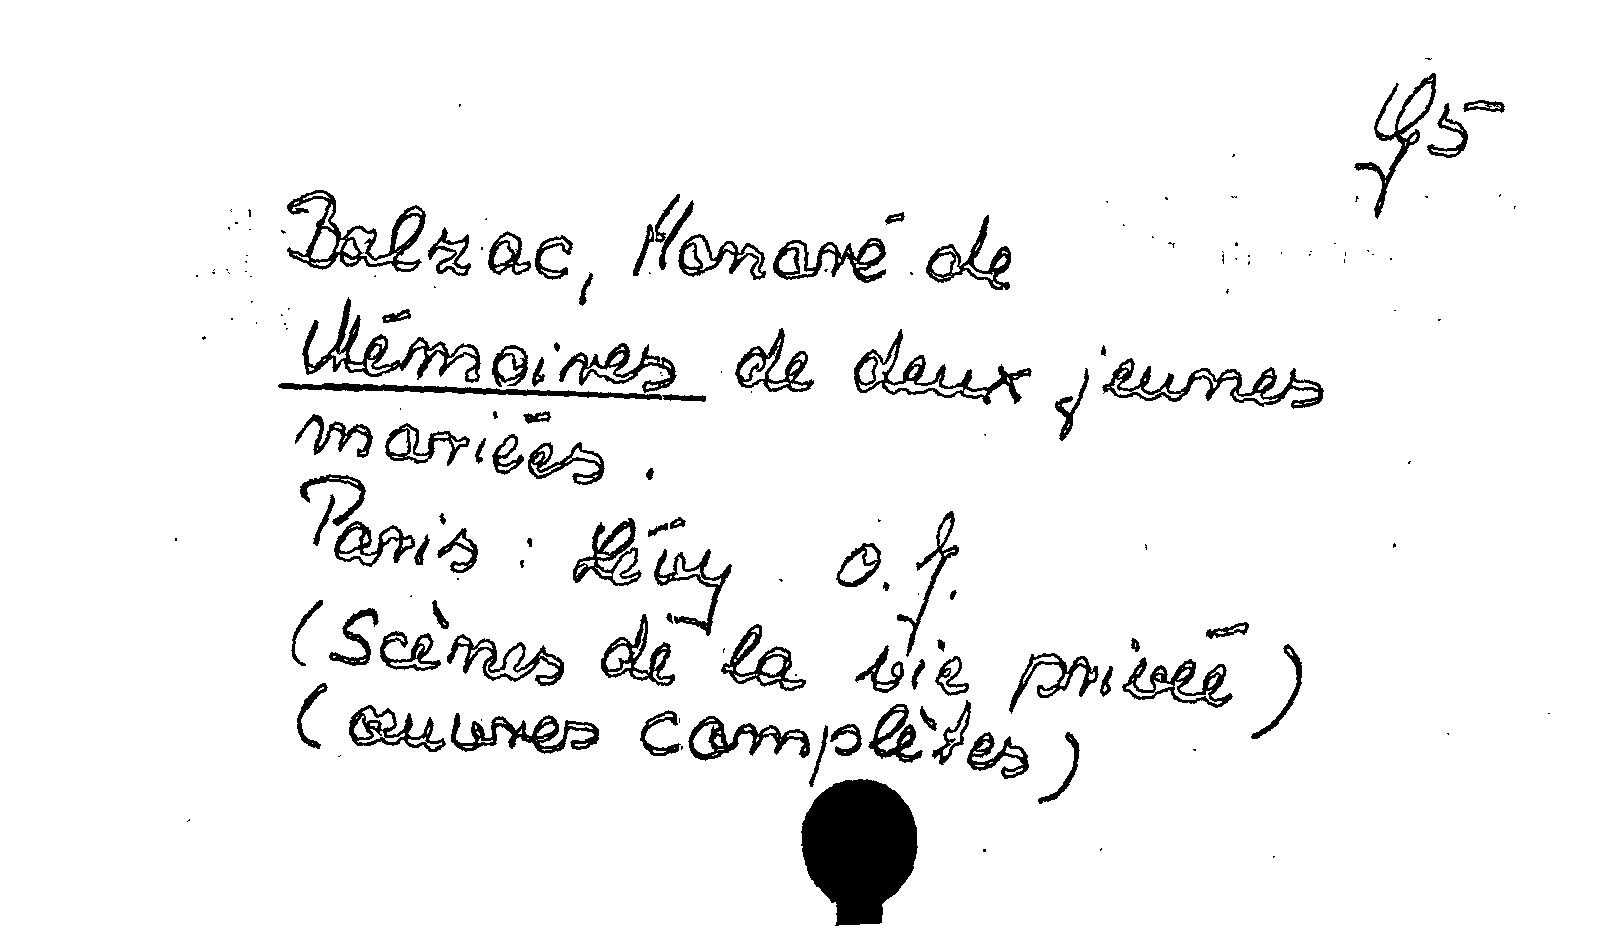 Y5
Balzac, Honoré de
Mémoires de deux jeunes
mariées.
Paris: Lévy o. J.
(Scènes de la vie privée)
(œuvres complètes)